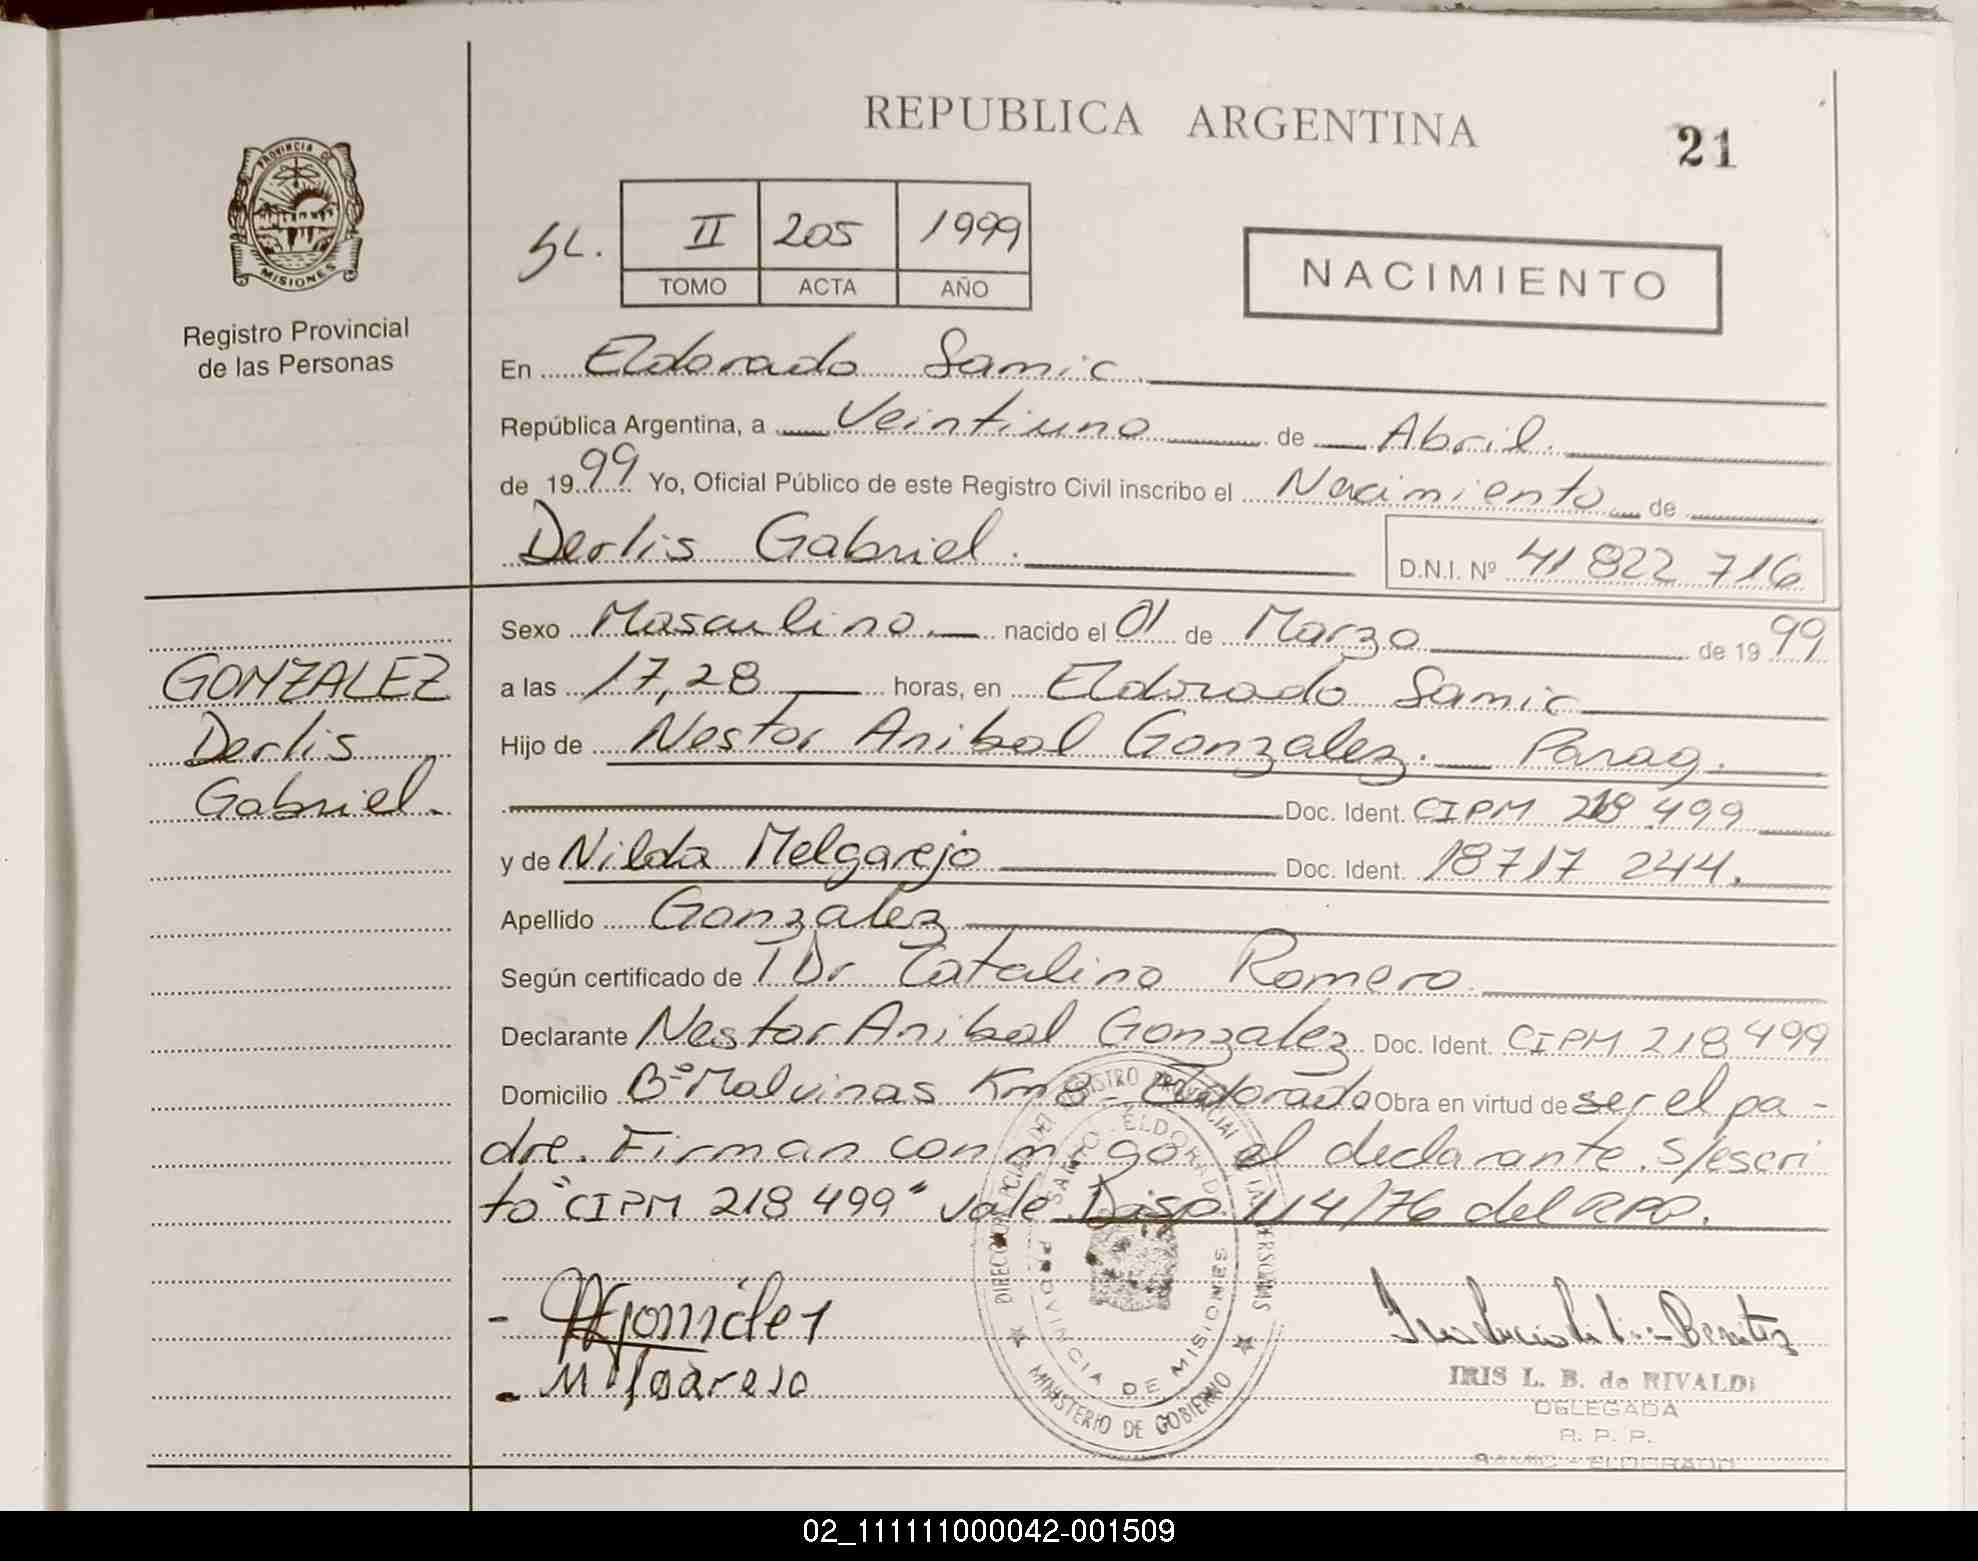 REPUBLICA ARGENTINA
21
PROVINCIA DE
MISIONES
Registro Provincial
de las Personas
SL. II 205 1999
TOMO ACTA AÑO
NACIMIENTO
En Eldorado Samic
República Argentina, a Veintiuno de Abril.
de 1999 Yo, Oficial Público de este Registro Civil inscribo el Nacimiento de
Derlis Gabriel. D.N.I. Nº 41 822 716
GONZALEZ
Derlis
Gabriel.
Sexo Masculino nacido el 01 de Marzo de 1999
a las 17,28 horas, en Eldorado Samic
Hijo de Nestor Anibal Gonzalez. Parag.
Doc. Ident. CIPM 218 499
y de Nilda Melgarejo Doc. Ident. 18717 244.
Apellido Gonzalez
Según certificado de Dr Catalino Romero
Declarante Nestor Anibal Gonzalez Doc. Ident. CIPM 218 499
Domicilio Bº Malvinas Km 8 - Eldorado Obra en virtud de ser el pa-
dre. Firman conmigo el declarante. s/escri
to "CIPM 218 499" vale Disp. 114/76 del RPP.
PROVINCIA DE MISIONES
MINISTERIO DE GOBIERNO
Benitez
IRIS L. B. de RIVALDI
DELEGADA
R. P. P.
SAMIC - ELDORADO
02_111111000042-001509